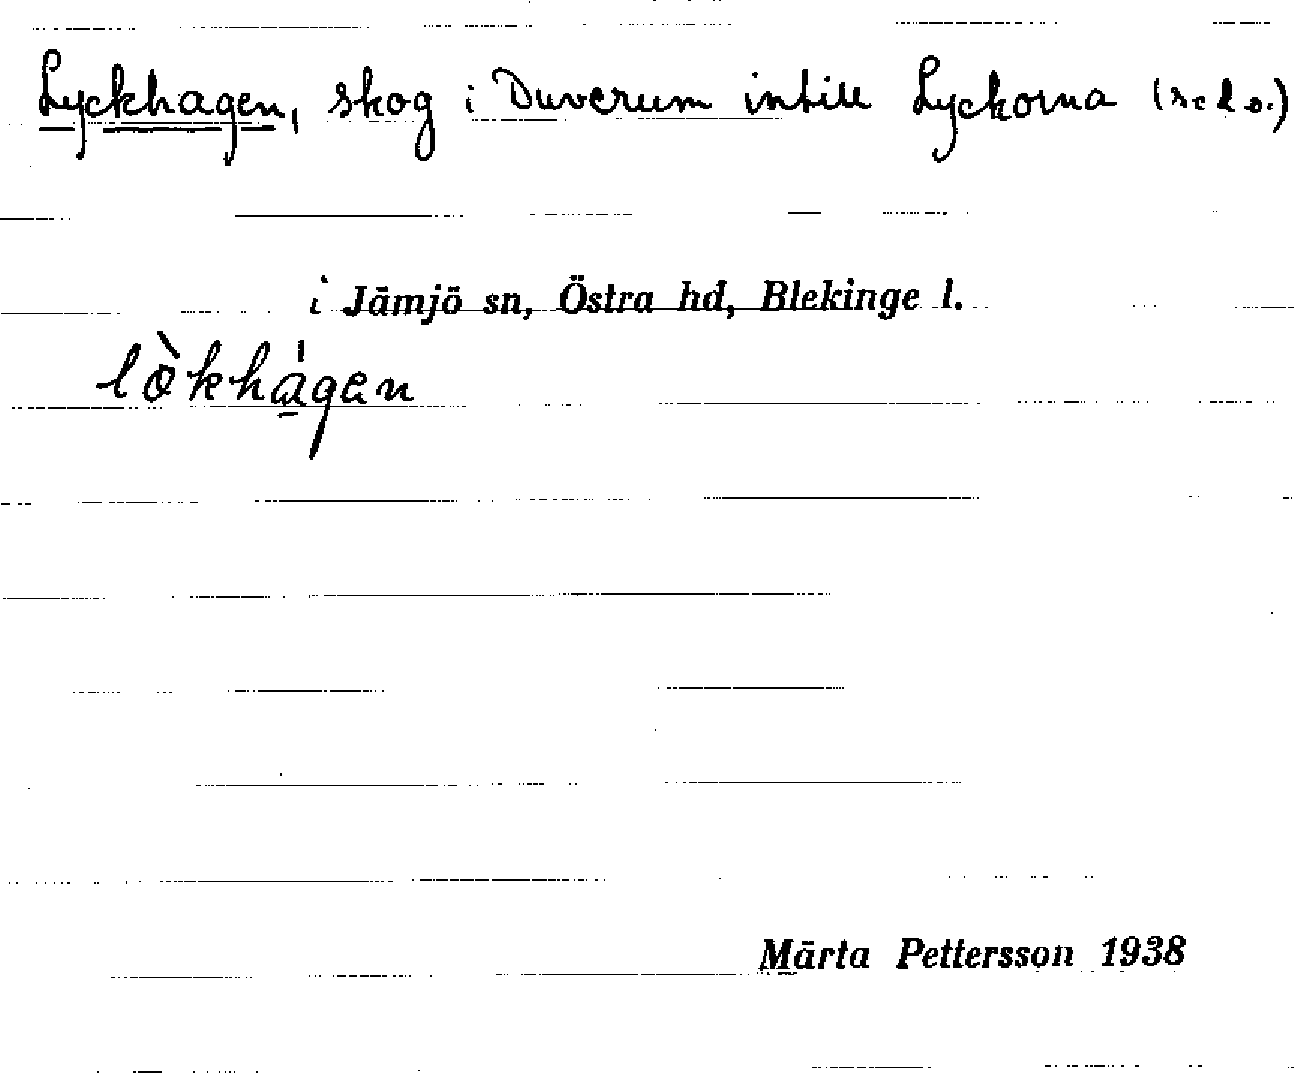 Lyckhagen, skog i Duverum intill Lyckorna (se d.o.)
i Jämjö sn, Östra hd, Blekinge l.
lòkhágen
Märta Pettersson 1938